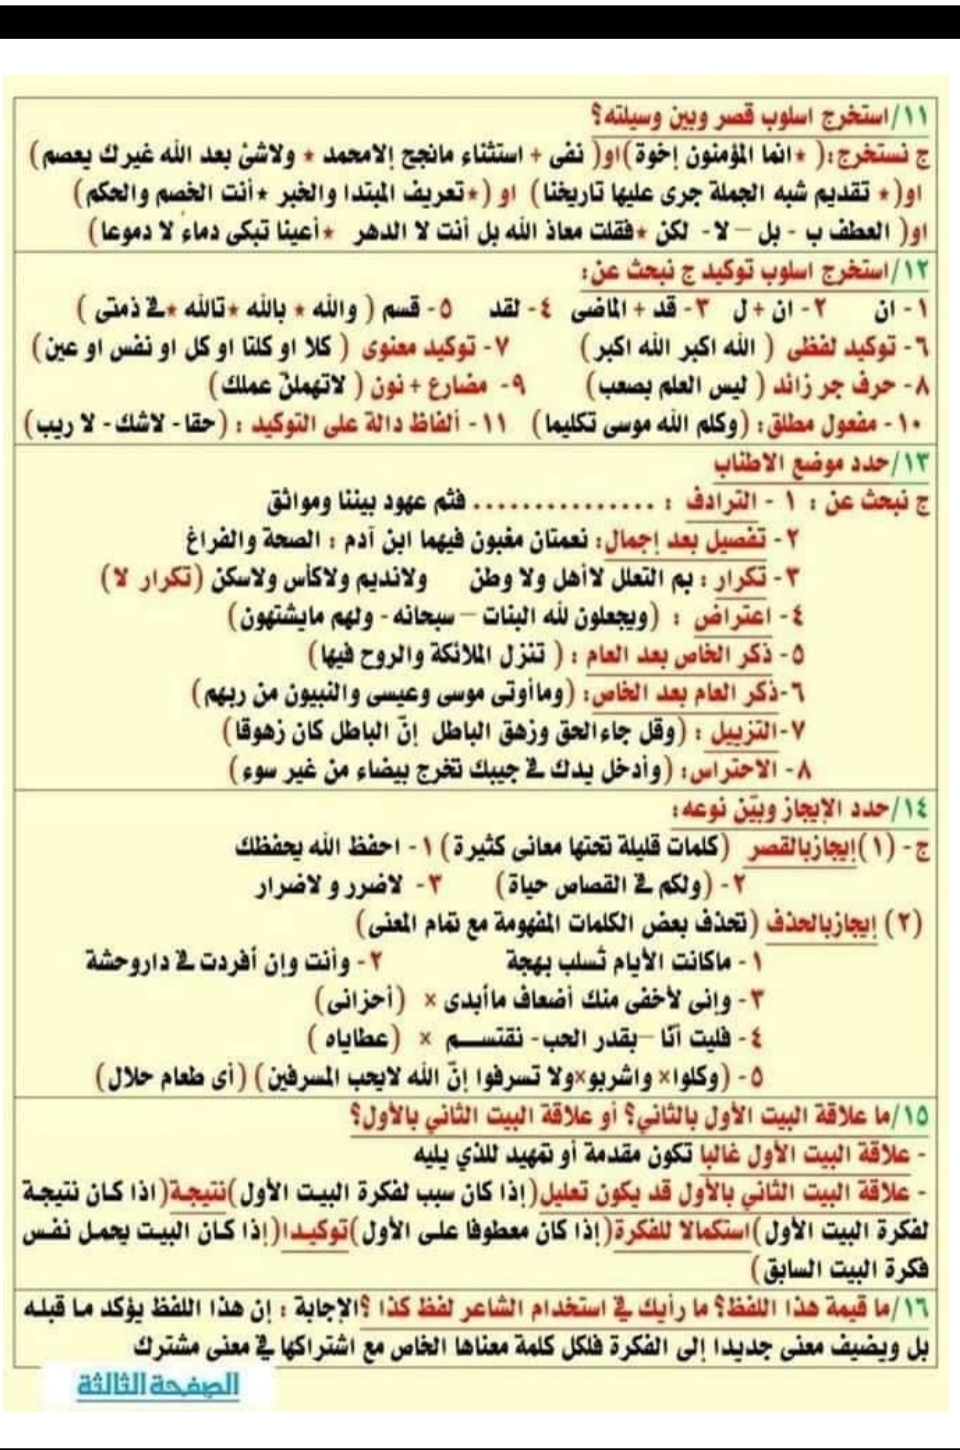 ١١/استخرج اسلوب قصر وبين وسيلته؟
ج نستخرج:( *انما المؤمنون إخوة)او( نفى + استثناء مانجح إلامحمد * ولاشئ بعد الله غيرك يعصم)
او(* تقديم شبه الجملة جرى عليها تاريخنا) او (*تعريف المبتدا والخبر *أنت الخصم والحكم)
او( العطف ب - بل – لا- لكن *فقلت معاذ الله بل أنت لا الدهر *أعينا تبكى دماء لا دموعا)
١٢/استخرج اسلوب توكيد ج نبحث عن:
١- ان ٢- ان + ل ٣- قد + الماضى ٤- لقد ٥- قسم ( والله * بالله *تالله *في ذمتى )
٦- توكيد لفظى ( الله اكبر الله اكبر) ٧- توكيد معنوى ( كلا او كلتا او كل او نفس او عين)
٨- حرف جر زائد ( ليس العلم بصعب) ٩- مضارع + نون ( لاتهملنّ عملك)
١٠- مفعول مطلق: (وكلم الله موسى تكليما) ١١- ألفاظ دالة على التوكيد : (حقا- لاشك- لا ريب)
١٣/حدد موضع الاطناب
ج نبحث عن : ١ - الترادف : ................ فثم عهود بيننا ومواثق
٢- تفصيل بعد إجمال: نعمتان مغبون فيهما ابن آدم : الصحة والفراغ
٣- تكرار : بم التعلل لاأهل ولا وطن ولانديم ولاكأس ولاسكن (تكرار لا)
٤- اعتراض : (ويجعلون لله البنات – سبحانه - ولهم مايشتهون)
٥- ذكر الخاص بعد العام : ( تنزل الملائكة والروح فيها)
٦-ذكر العام بعد الخاص: (وماأوتى موسى وعيسى والنبيون من ربهم)
٧-التزييل : (وقل جاءالحق وزهق الباطل إنّ الباطل كان زهوقا)
٨- الاحتراس: (وأدخل يدك في جيبك تخرج بيضاء من غير سوء)
١٤/حدد الإيجاز وبيّن نوعه:
ج- (١)إيجازبالقصر (كلمات قليلة تحتها معانى كثيرة) ١- احفظ الله يحفظك
٢- (ولكم في القصاص حياة) ٣- لاضرر و لاضرار
(٢) إيجازبالحذف (تحذف بعض الكلمات المفهومة مع تمام المعنى)
١- ماكانت الأيام تُسلب بهجة ٢- وأنت وإن أفردت في داروحشة
٣- وإنى لأخفى منك أضعاف ماأبدى × (أحزانى)
٤- فليت أنّا –بقدر الحب- نقتســـم × (عطاياه )
٥- (وكلوا× واشربو×ولا تسرفوا إنّ الله لايحب المسرفين) (أى طعام حلال)
١٥/ما علاقة البيت الأول بالثاني؟ أو علاقة البيت الثاني بالأول؟
- علاقة البيت الأول غالبا تكون مقدمة أو تمهيد للذي يليه
- علاقة البيت الثاني بالأول قد يكون تعليل(إذا كان سبب لفكرة البيت الأول)نتيجة(اذا كان نتيجة
لفكرة البيت الأول)استكمالا للفكرة(إذا كان معطوفا على الأول)توكيدا(إذا كان البيت يحمل نفس
فكرة البيت السابق)
١٦/ما قيمة هذا اللفظ؟ ما رأيك في استخدام الشاعر لفظ كذا ؟الإجابة : إن هذا اللفظ يؤكد ما قبله
بل ويضيف معنى جديدا إلى الفكرة فلكل كلمة معناها الخاص مع اشتراكها في معنى مشترك
الصفحة الثالثة